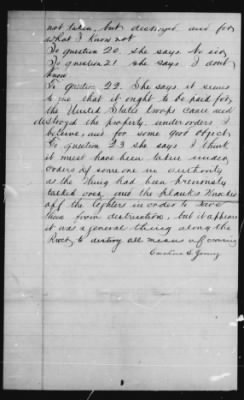 not taken, but destroyed and for
what I know not
To question 20. she says No sir,
To question 21 she says I dont
know
To question 22. She says it seems
to me that it ought to be paid for,
the United States troops came and
destroyed the property, under orders I
believe, and for some good object,
To question 23 she says I think
it must have been taken under
orders of some one in authority
as the thing had been previously
talked over, and the planks knocked
off the lighters in order to save
them from destruction, but it appears
it was a general thing along the
River, to destroy all means of crossing
Caroline S. Young